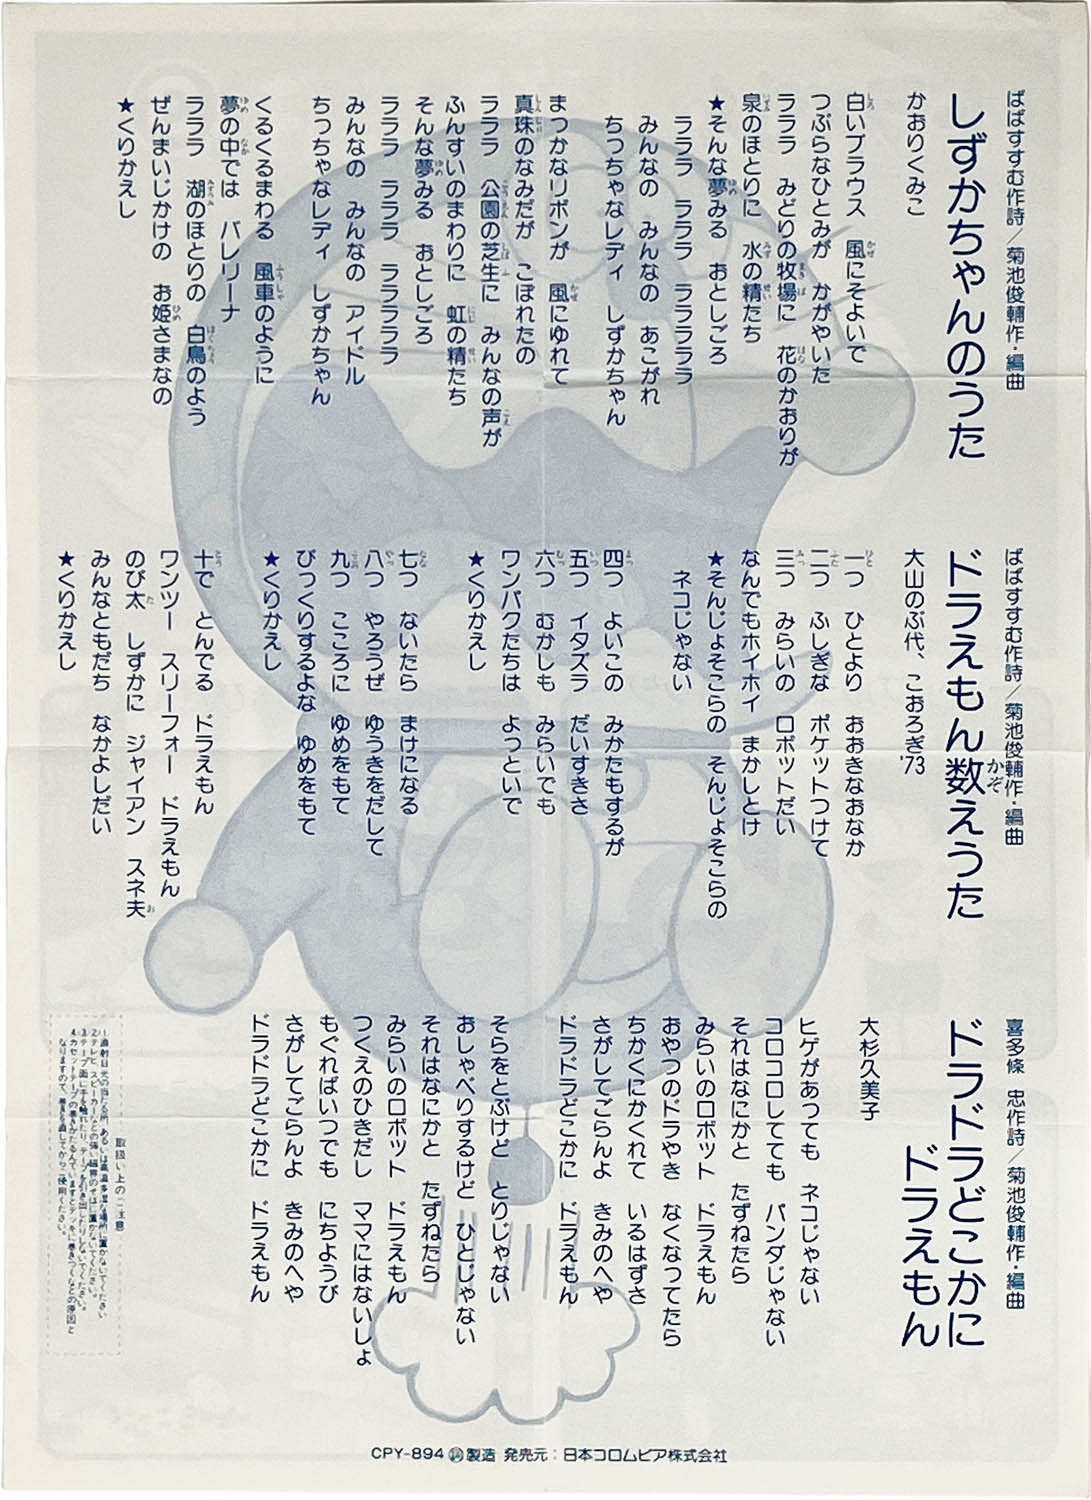 ばばすすむ作詩／菊池俊輔作・編曲
しずかちゃんのうた
かおりくみこ
白いブラウス　風にそよいで
つぶらなひとみが　かがやいた
ラララ　みどりの牧場に　花のかおりが
泉のほとりに　水の精たち
★そんな夢みる　おとしごろ
ラララ　ラララ　ララララ
みんなの　みんなの　あこがれ
ちっちゃなレディ　しずかちゃん
まっかなリボンが　風にゆれて
真珠のなみだが　こぼれたの
ラララ　公園の芝生に　みんなの声が
ふんすいのまわりに　虹の精たち
そんな夢みる　おとしごろ
ラララ　ラララ　ララララ
みんなの　みんなの　アイドル
ちっちゃなレディ　しずかちゃん
くるくるまわる　風車のように
夢の中では　バレリーナ
ラララ　湖のほとりの　白鳥のよう
ぜんまいじかけの　お姫さまなの
★くりかえし
ばばすすむ作詩／菊池俊輔作・編曲
ドラえもん数えうた
大山のぶ代、こおろぎ'73
一つ　ひとより　おおきなおなか
二つ　ふしぎな　ポケットつけて
三つ　みらいの　ロボットだい
なんでもホイホイ　まかしとけ
★そんじょそこらの　そんじょそこらの
ネコじゃない
四つ　よいこの　みかたもするが
五つ　イタズラ　だいすきさ
六つ　むかしも　みらいでも
ワンパクたちは　よっといで
★くりかえし
七つ　ないたら　まけになる
八つ　やろうぜ　ゆうきをだして
九つ　こころに　ゆめをもて
びっくりするよな　ゆめをもて
★くりかえし
十で　とんでる　ドラえもん
ワンツー　スリーフォー　ドラえもん
のび太　しずかに　ジャイアン　スネ夫
みんなともだち　なかよしだい
★くりかえし
喜多條　忠作詩／菊池俊輔作・編曲
ドラドラどこかに
ドラえもん
大杉久美子
ヒゲがあっても　ネコじゃない
コロコロしてても　パンダじゃない
それはなにかと　たずねたら
みらいのロボット　ドラえもん
おやつのドラやき　なくなってたら
ちかくにかくれて　いるはずさ
さがしてごらんよ　きみのへや
ドラドラどこかに　ドラえもん
そらをとぶけど　とりじゃない
おしゃべりするけど　ひとじゃない
それはなにかと　たずねたら
みらいのロボット　ドラえもん
つくえのひきだし　ママにはないしょ
もぐればいつでも　にちようび
さがしてごらんよ　きみのへや
ドラドラどこかに　ドラえもん
取扱い上のご注意
1.直射日光の当たる所、あるいは高温多湿な場所に置かないでください。
2.テレビ、スピーカーなどの強い磁界のそばに置かないでください。
3.テープ面に手を触れたり、テープを引き出したりしないでください。
4.カセットテープの巻きがたるんでいますとデッキに巻きつくなどの原因と
なりますので、巻きを直してからご使用ください。
CPY-894 製造 発売元：日本コロムビア株式会社